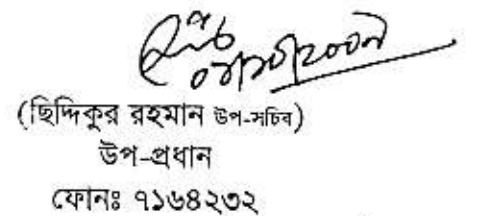 (ছিদ্দিকুর রহমান উপ-সচিব)
উপ-প্রধান
ফোনঃ ৭১৬৪২৩২